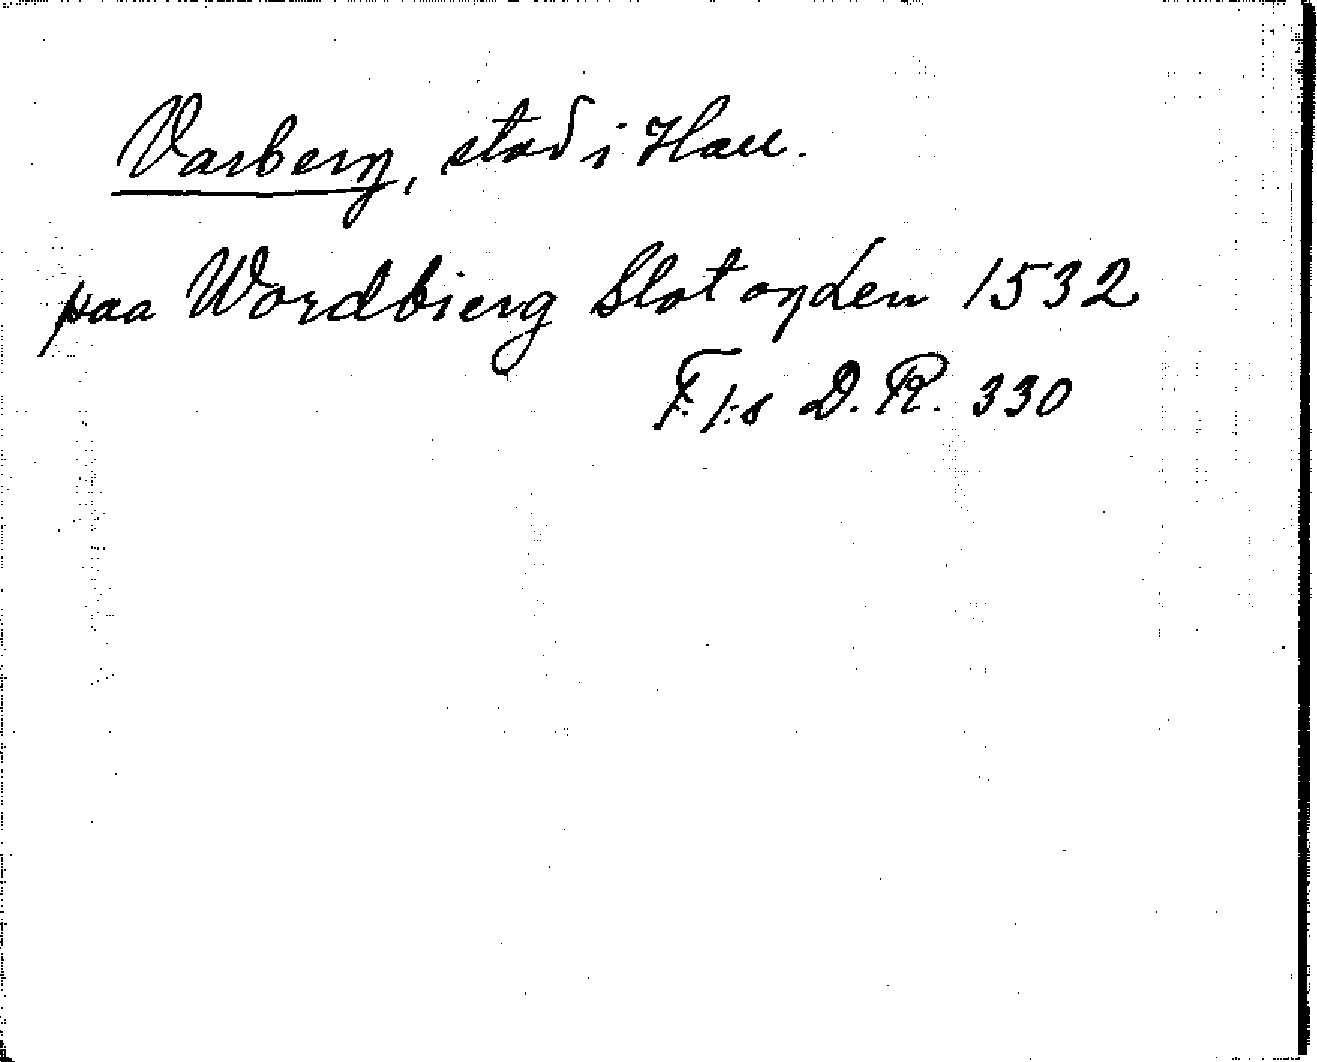 Varberg, stad i Hall.
paa Wordbierg Slot og Len 1532
F. I:s D. R. 330